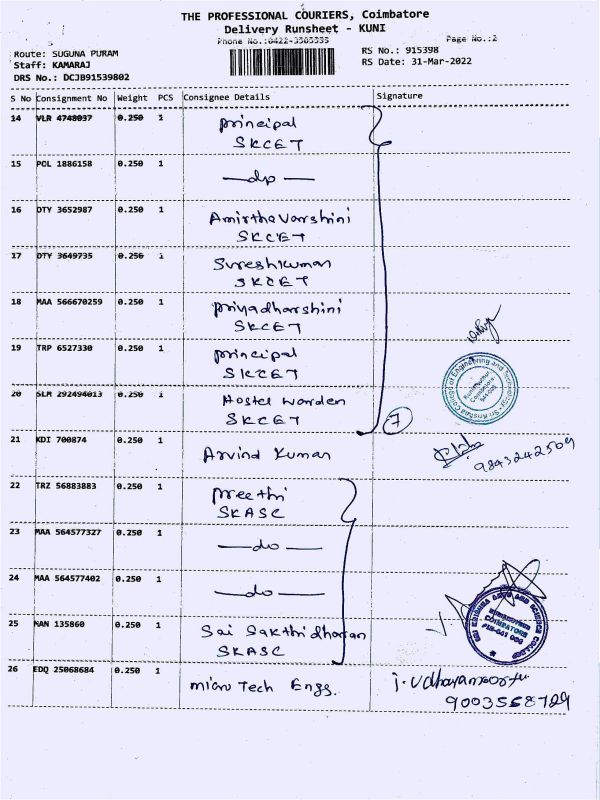 THE PROFESSIONAL COURIERS, Coimbatore
Delivery Runsheet - KUNI
Phone No.:0422-3585535 Page No.:2
Route: SUGUNA PURAM RS No.: 915398
Staff: KAMARAJ RS Date: 31-Mar-2022
DRS No.: DCJB91539802
S No Consignment No Weight PCS Consignee Details Signature
14 VLR 4748037 0.250 1 Principal
SKCET
15 POL 1886158 0.250 1 —do—
16 DTY 3652987 0.250 1 Amirthavarshini
SKCET
17 DTY 3649735 0.250 1 Sureshkumar
SKCET
18 MAA 566670259 0.250 1 Priyadharshini
SKCET
19 TRP 6527330 0.250 1 Principal
SKCET
20 SLM 292494013 0.250 1 Hostel Warden
SKCET
7
Sri Krishna College of Engineering and Technology
Kuniamuthur
Coimbatore
641 008
21 KDI 700874 0.250 1 Arvind Kumar
9843242509
22 TRZ 56883883 0.250 1 Preethi
SKASC
23 MAA 564577327 0.250 1 —do—
24 MAA 564577402 0.250 1 —do—
25 NAN 135860 0.250 1 Sai Sakthidharan
SKASC
SRI KRISHNA ARTS AND SCIENCE COLLEGE
KUNIAMUTHUR
COIMBATORE
PIN-641 008
26 EDQ 25068684 0.250 1 Micro Tech Engg.
9003558729